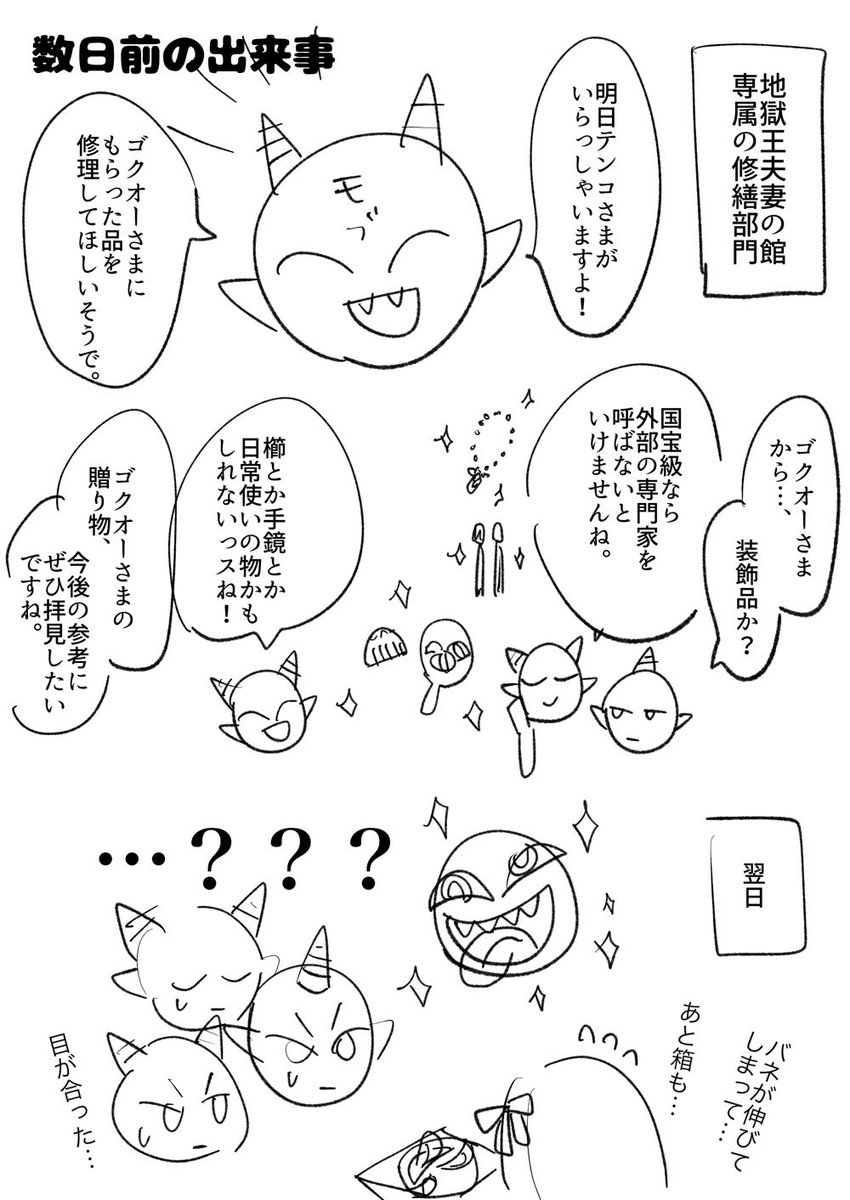 数日前の出来事
地獄王夫妻の館
専属の修繕部門
明日テンコさまが
いらっしゃいますよ！
モブ
ゴクオーさまに
もらった品を
修理してほしいそうで。
ゴクオーさま
から…、
装飾品か？
国宝級なら
外部の専門家を
呼ばないと
いけませんね。
櫛とか手鏡とか
日常使いの物かも
しれないっスね！
ゴクオーさまの
贈り物、
今後の参考に
ぜひ拝見したい
ですね。
翌日
…？？？
バネが伸びて
しまって…
あと箱も…
目が合った…